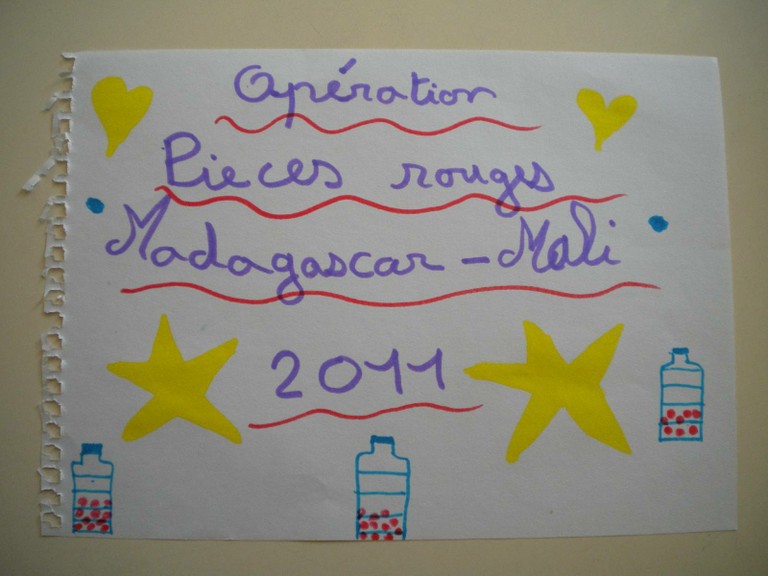 Opération
Pieces rouges
Madagascar - Mali
2011